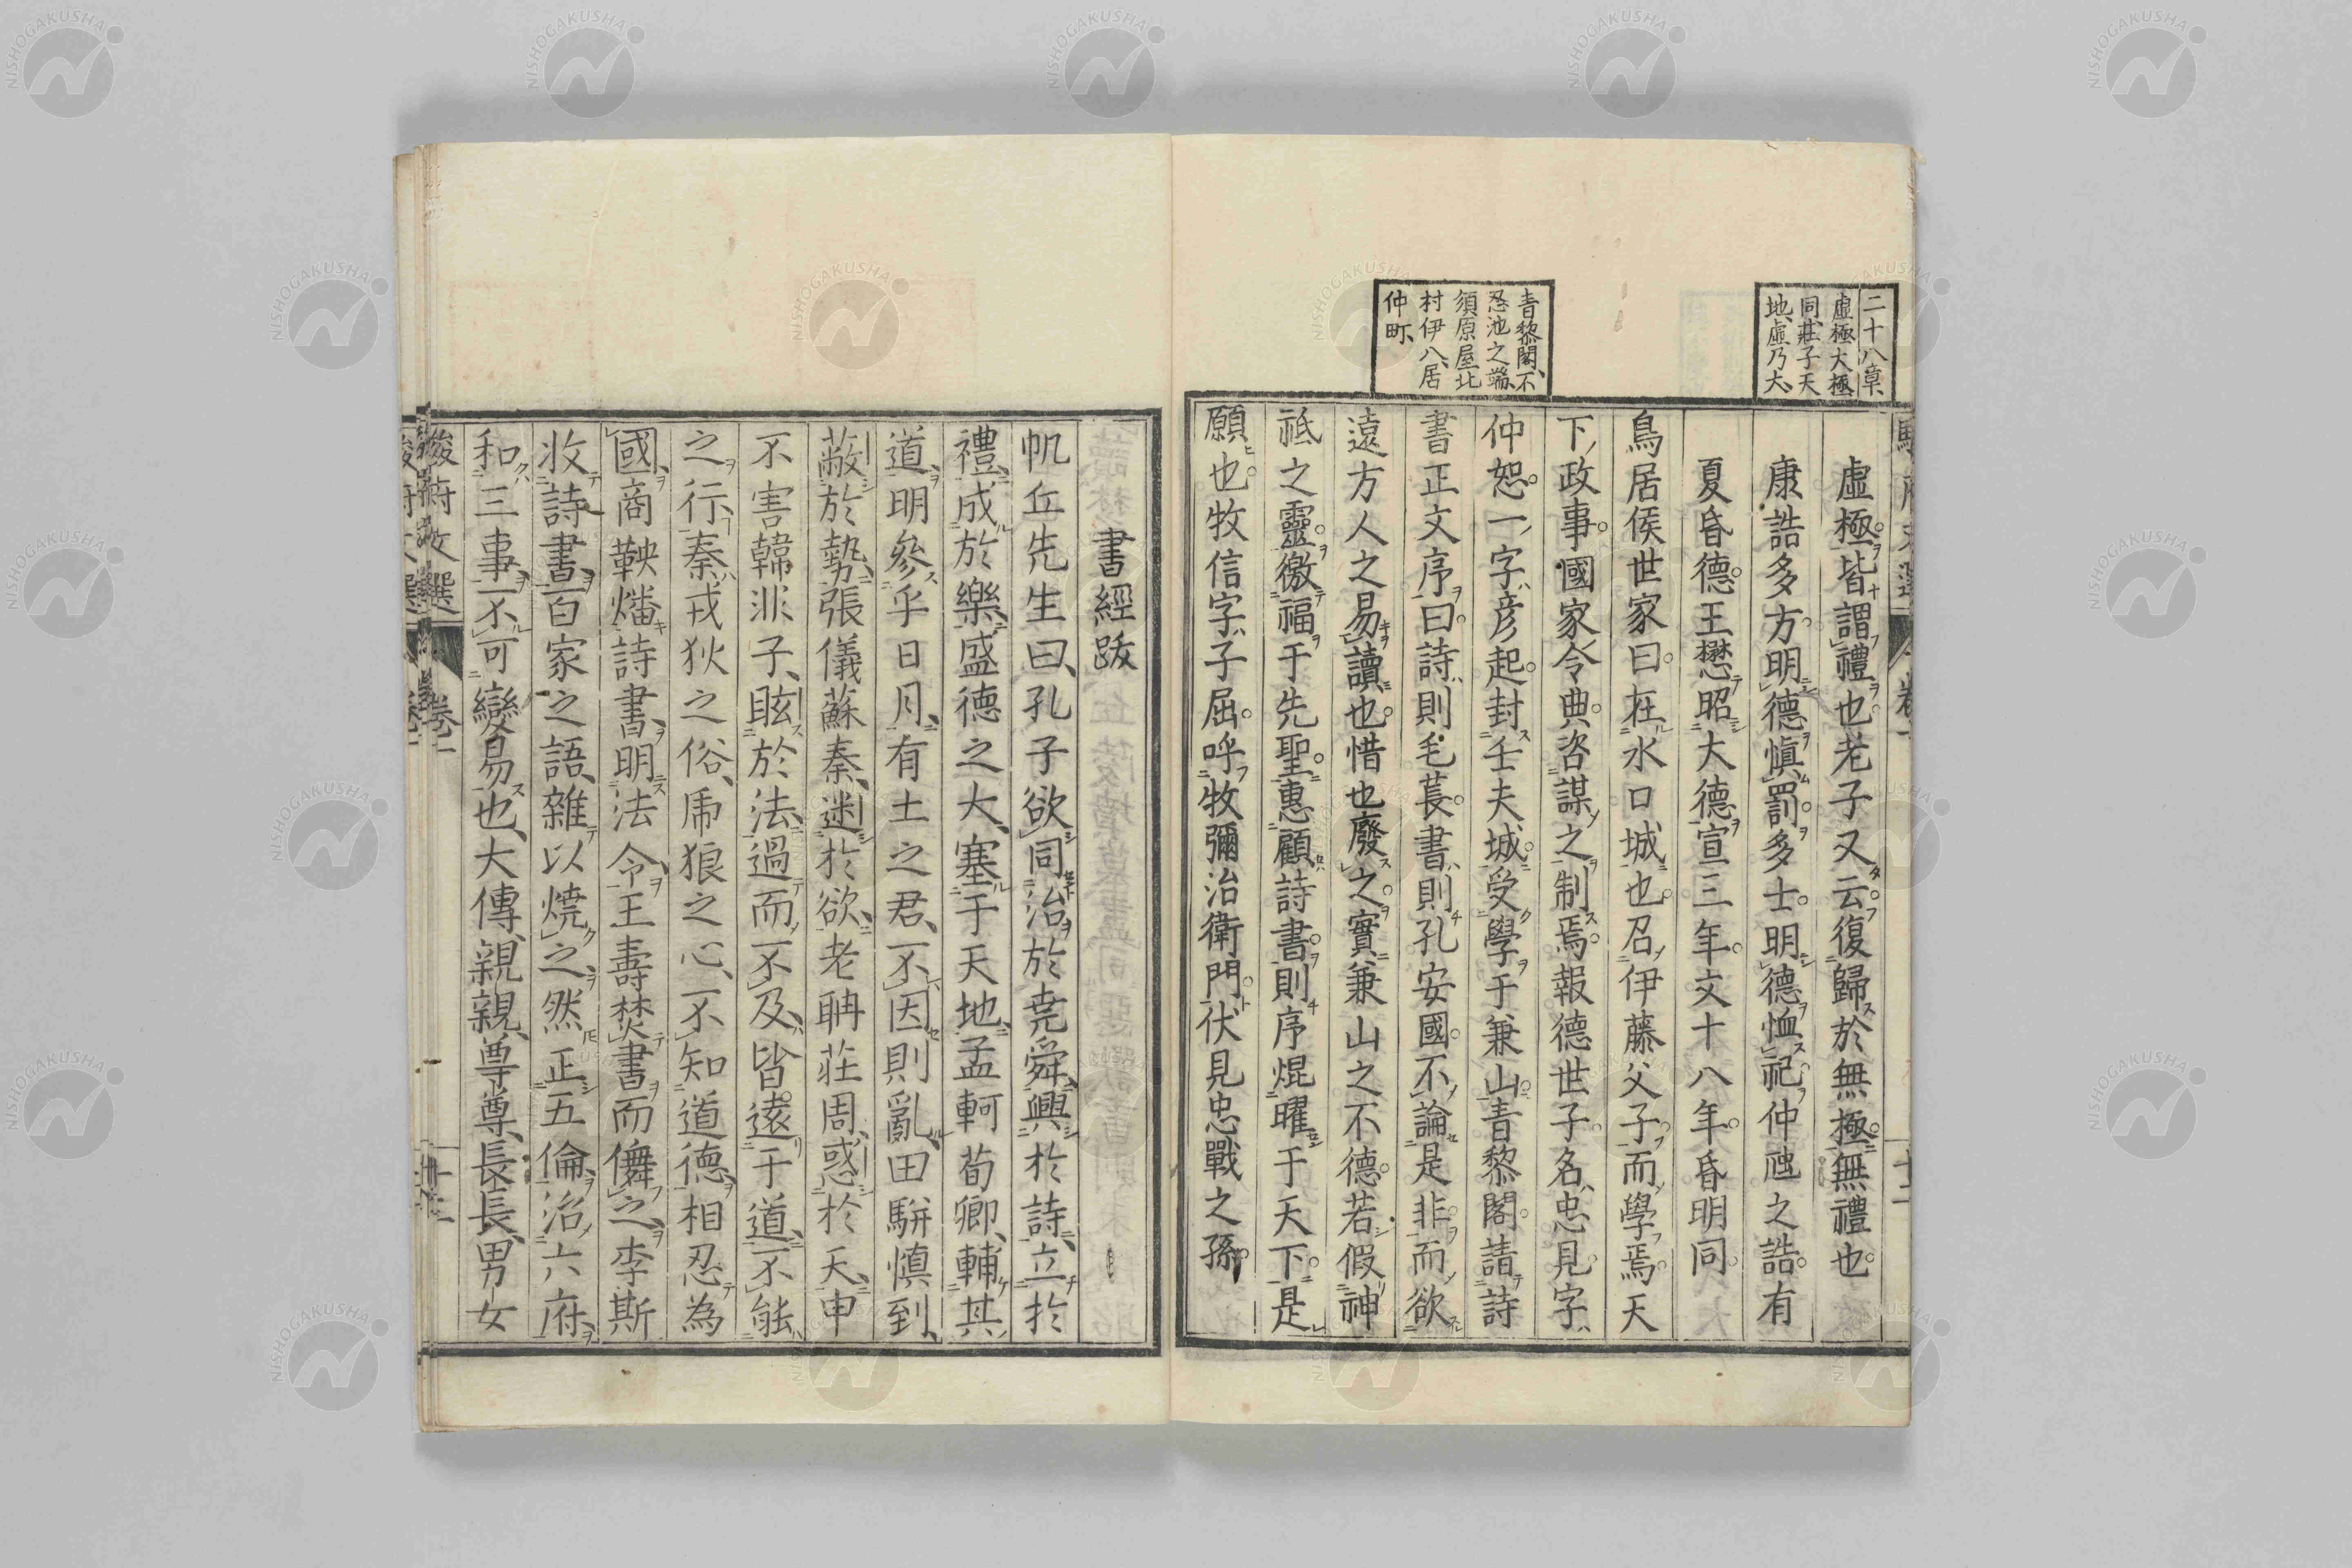 二十八章
虛極大極
同莊子天
地虛乃大
青黎閣不
忍池之端
須原屋北
村伊八居
仲町
虛極皆謂禮也老子又云復歸於無極無禮也
康誥多方明德愼罰多士明德恤祀仲虺之誥有
夏昏德王懋昭大德宣三年文十八年昏明同
鳥居侯世家曰在水口城也召伊藤父子而學焉天
下政事國家令典咨謀之制焉報德世子名忠見字
仲恕一字彦起封壬夫城受學于兼山青黎閣請詩
書正文序曰詩則毛萇書則孔安國不論是非而欲
遠方人之易讀也惜也廢之實兼山之不德若假神
祗之靈徼福于先聖惠顧詩書則序焜曜于天下是
願也牧信字子屈呼牧彌治衛門伏見忠戰之孫
書經跋
帆丘先生曰孔子欲同治於堯舜興於詩立於
禮成於樂盛德之大塞于天地孟軻荀卿輔其
道明參乎日月有土之君不因則亂田駢愼到
蔽於勢張儀蘇秦迷於欲老聃莊周惑於天申
不害韓非子眩於法過而不及皆遠于道不能
之行秦戎狄之俗虎狼之心不知道德相忍為
國商鞅燔詩書明法令王壽焚書而儛之李斯
收詩書百家之語雜以燒之然正五倫治六府
和三事不可變易也大傳親親尊尊長長男女